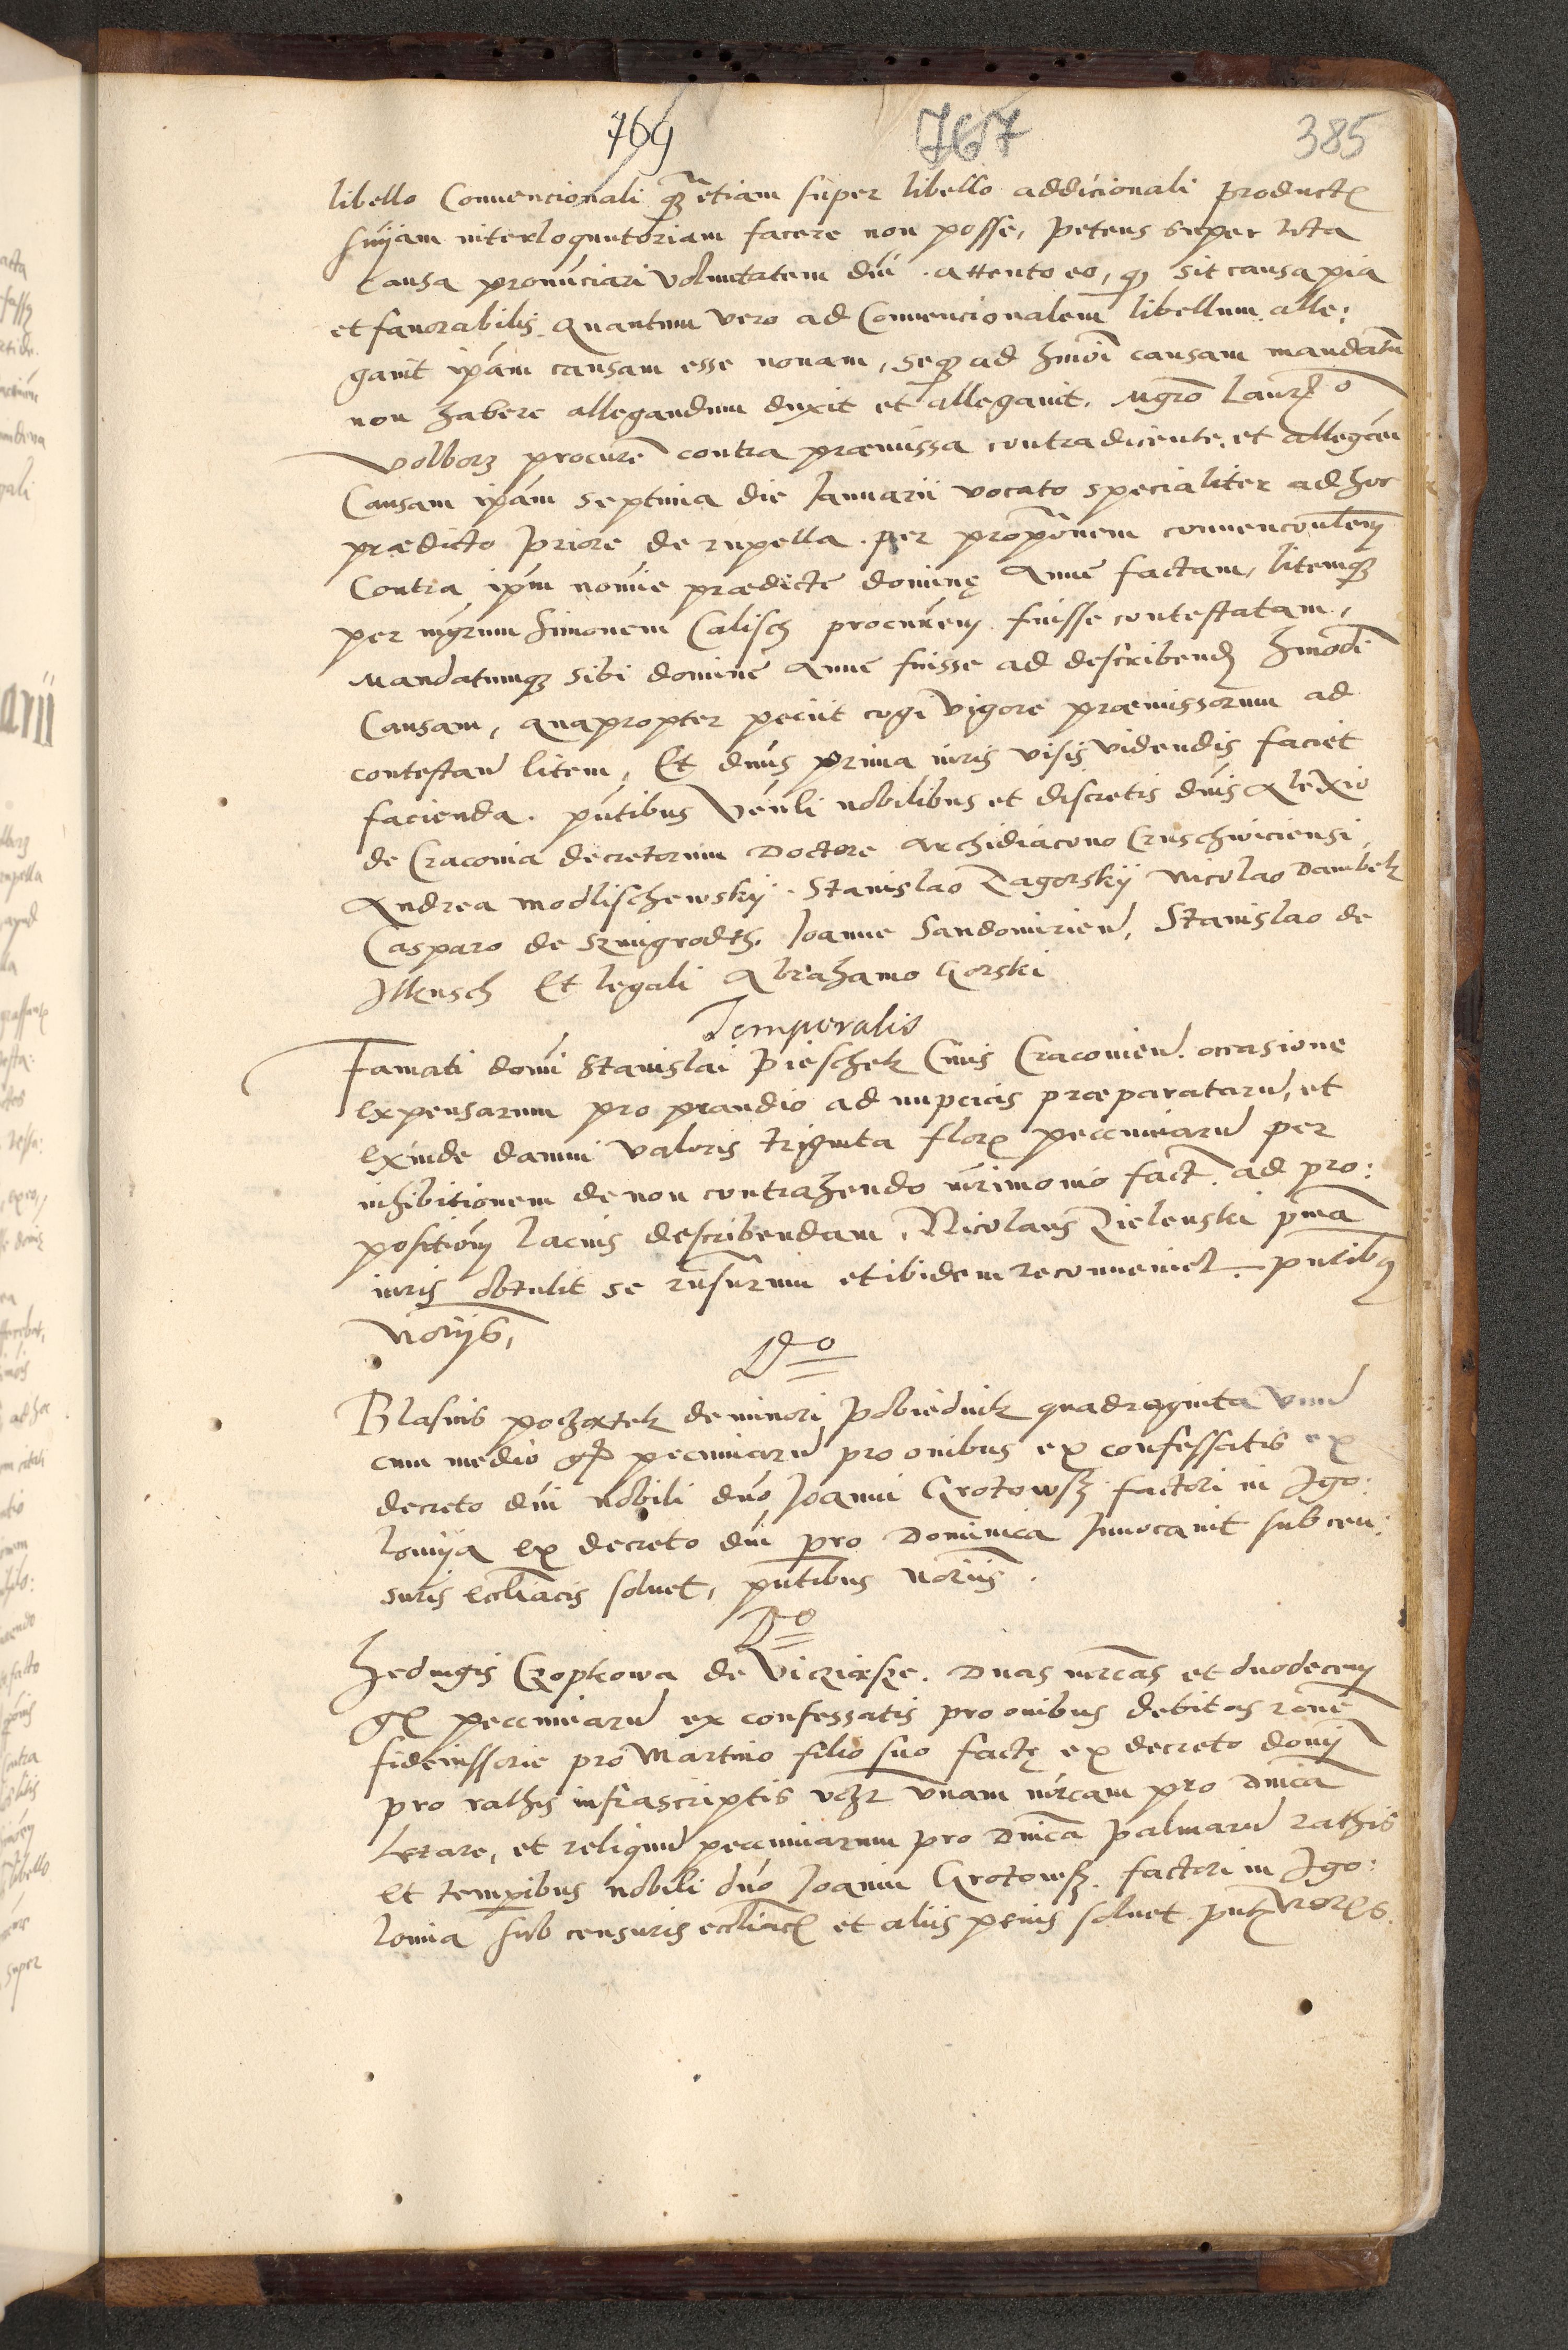 769 767 385
libello Convencionali q̃ etiam super libello addicionali product
sniam interloquutoriam facere non posse, petens super lita
causa pronunciari voluntatem dni. attento eo, q sit causa pia
et favorabilis. Quantum vero ad Convencionalem libellum alle:
gavit ipam causam esse novam, seq ad hmoi causam mandatu
non habere allegandum duxit et allegavit. Mgro Laur°
Volborz procure contra præmissa contradicente, et allegan
Causam ipam septima die Januarii vocato specialiter ad hoc
prædicto Priore de rupella. per propõnem convenconlem
Contra ipm nomine prædicte dominę Anne factam, litemq
per mgrum Simonem Calisch procurem fuisse contestatam,
Mandatumq sibi domine Anne fuisse ad describend hmodi
Causam, quapropter peciit cogi vigore præmissorum ad
contestan litem, Et dnus prima iuris visis videndis faciet
facienda. pntibus Venli nobilibus et discretis dnis Alexio
de Cracovia decretorum Doctore Archidiacono Cruschviciensi,
Andrea Modlischewskÿ. Stanislao Zagorskÿ Nicolao Dambek
Casparo de Szmigrodth. Joanne Sandomirien, Stanislao de
Ilkusch Et legali Abrahamo Gorski
Temporalis
Famati domi Stanislai Pieschek Civis Cracovien. occasione
expensarum pro prandio ad nupcias præparatarum, et
exinde damni valoris triginta flor pecuniarum per
inhibitionem de non contrahendo mrimonio fact. ad pro:
positiom lacius describendam. Nicolaus Zielenski pma
iuris obtulit se rnsurum et ibidem reconveniet. pntibq
Noriis,
Do
Blasius poczatek de minori Pobiednik quadraginta unum
cum medio gr pecuniarum pro omibus ex confessatis ex
decreto dni nobili dno Joanni Grotowsk factori in Igo:
lomÿa ex decreto dni pro Dominica Invocavit sub cen:
suris eccliacis solvet, pntibus Noriis.
Do
Hedvigis Czopkowa de . Duas mrcas et duodecem
gr pecuniarum ex confessatis pro omibus debitas rone
fideiussorie pro Martino filio suo factę ex decreto domi
pro rathis infrascriptis vczt unam mrcam pro Dnica
Letare, et reliquum pecuniarum pro Dnica palmarum rathis
et temporibus nobili dno Joanni Grotowsk. factori in Igo:
lomia sub censuris eccliac et aliis penis solvet. pnt Nor